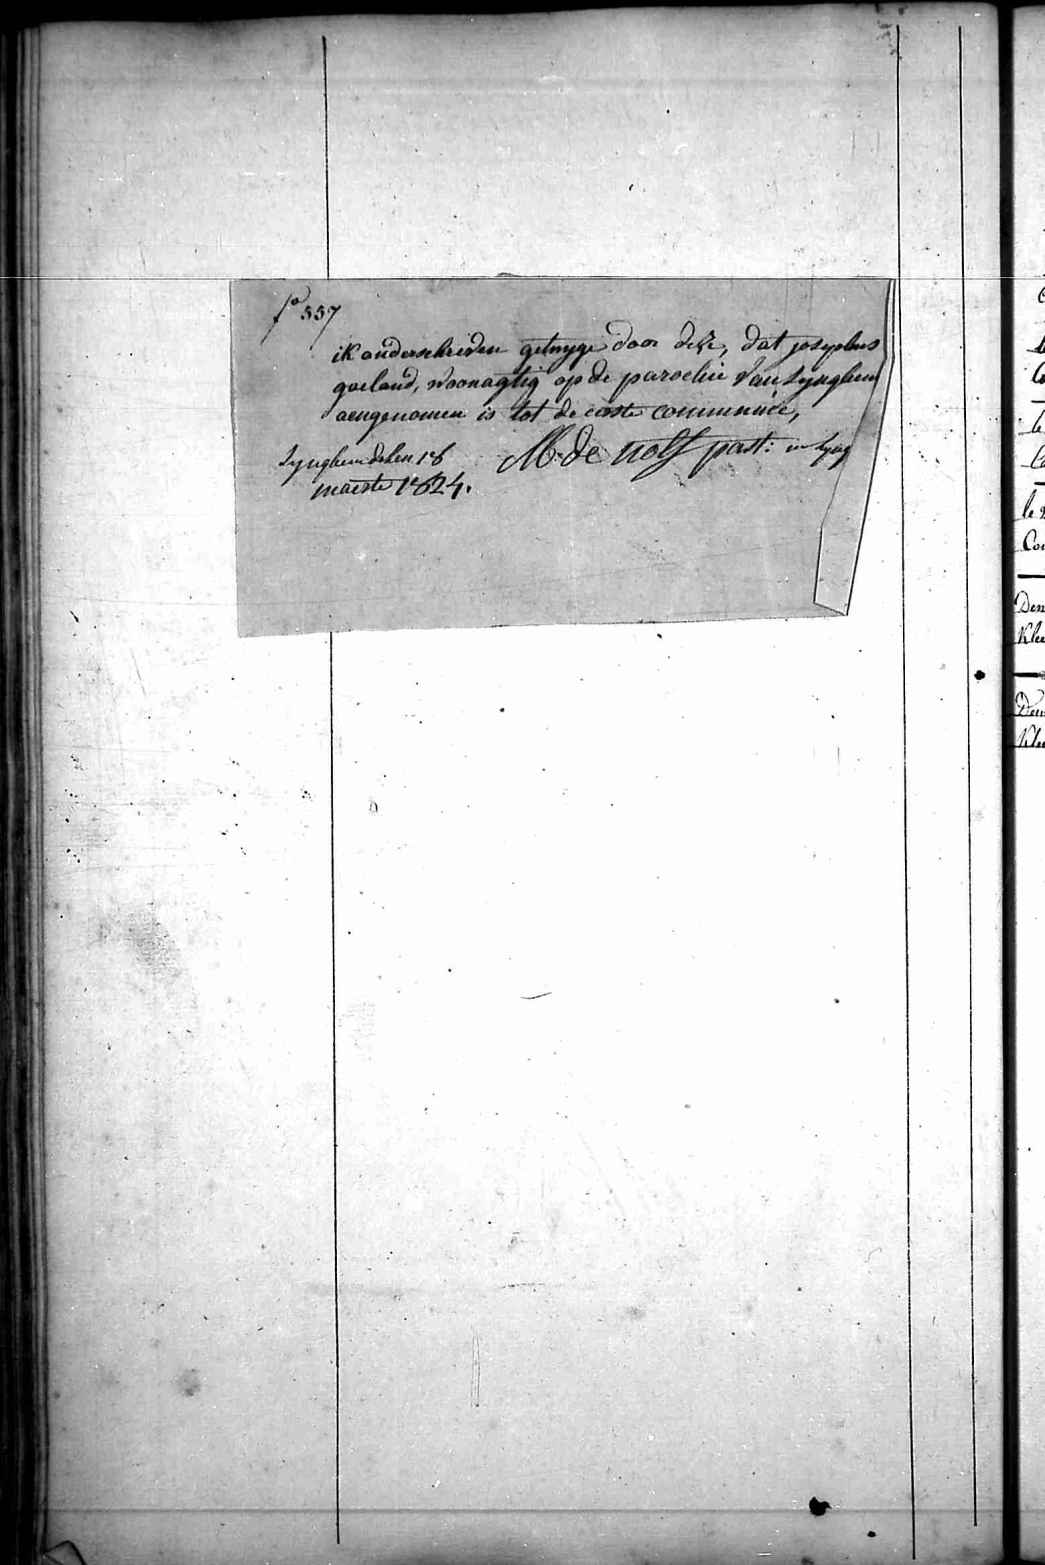 fo 337
ik onderschreven getuyge door deze, dat josephus
goeland, woonagtig op de parochie van Synghem
aengenomen is tot de eerste communnie,
Synghem desen 18 M. de nolf past: in Syng
maerte 1824.
le
Den
Den